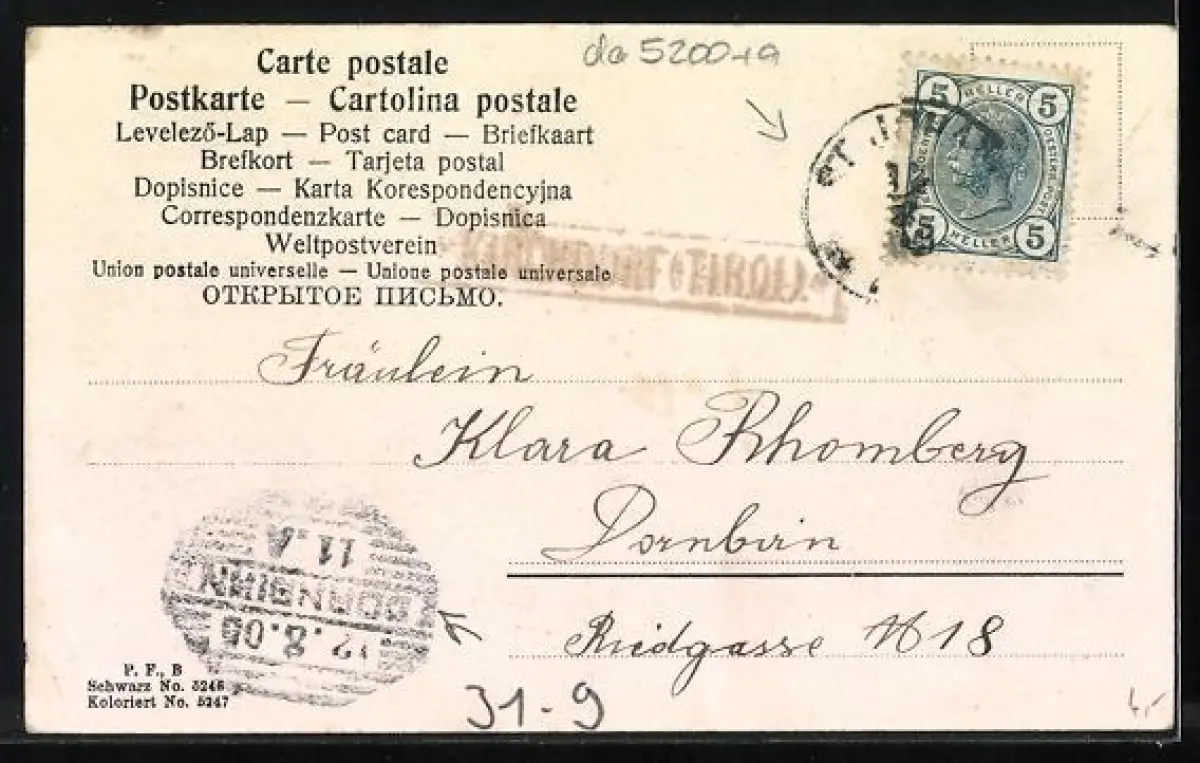 Carte postale
Postkarte — Cartolina postale
Levelező-Lap — Post card — Briefkaart
Brefkort — Tarjeta postal
Dopisnice — Karta Korespondencyjna
Correspondenzkarte — Dopisnica
Weltpostverein
Union postale universelle — Unione postale universale
ОТКРЫТОЕ ПИСЬМО.
da 5200+a
5 HELLER 5
5 HELLER 5
ST.
Fräulein
Klara Rhomberg
Dornbirn
Riedgasse N 18
DORNBIRN
11.A
12.8.05
P. F., B
Schwarz No. 5246
Koloriert No. 5247
31-9
4,-